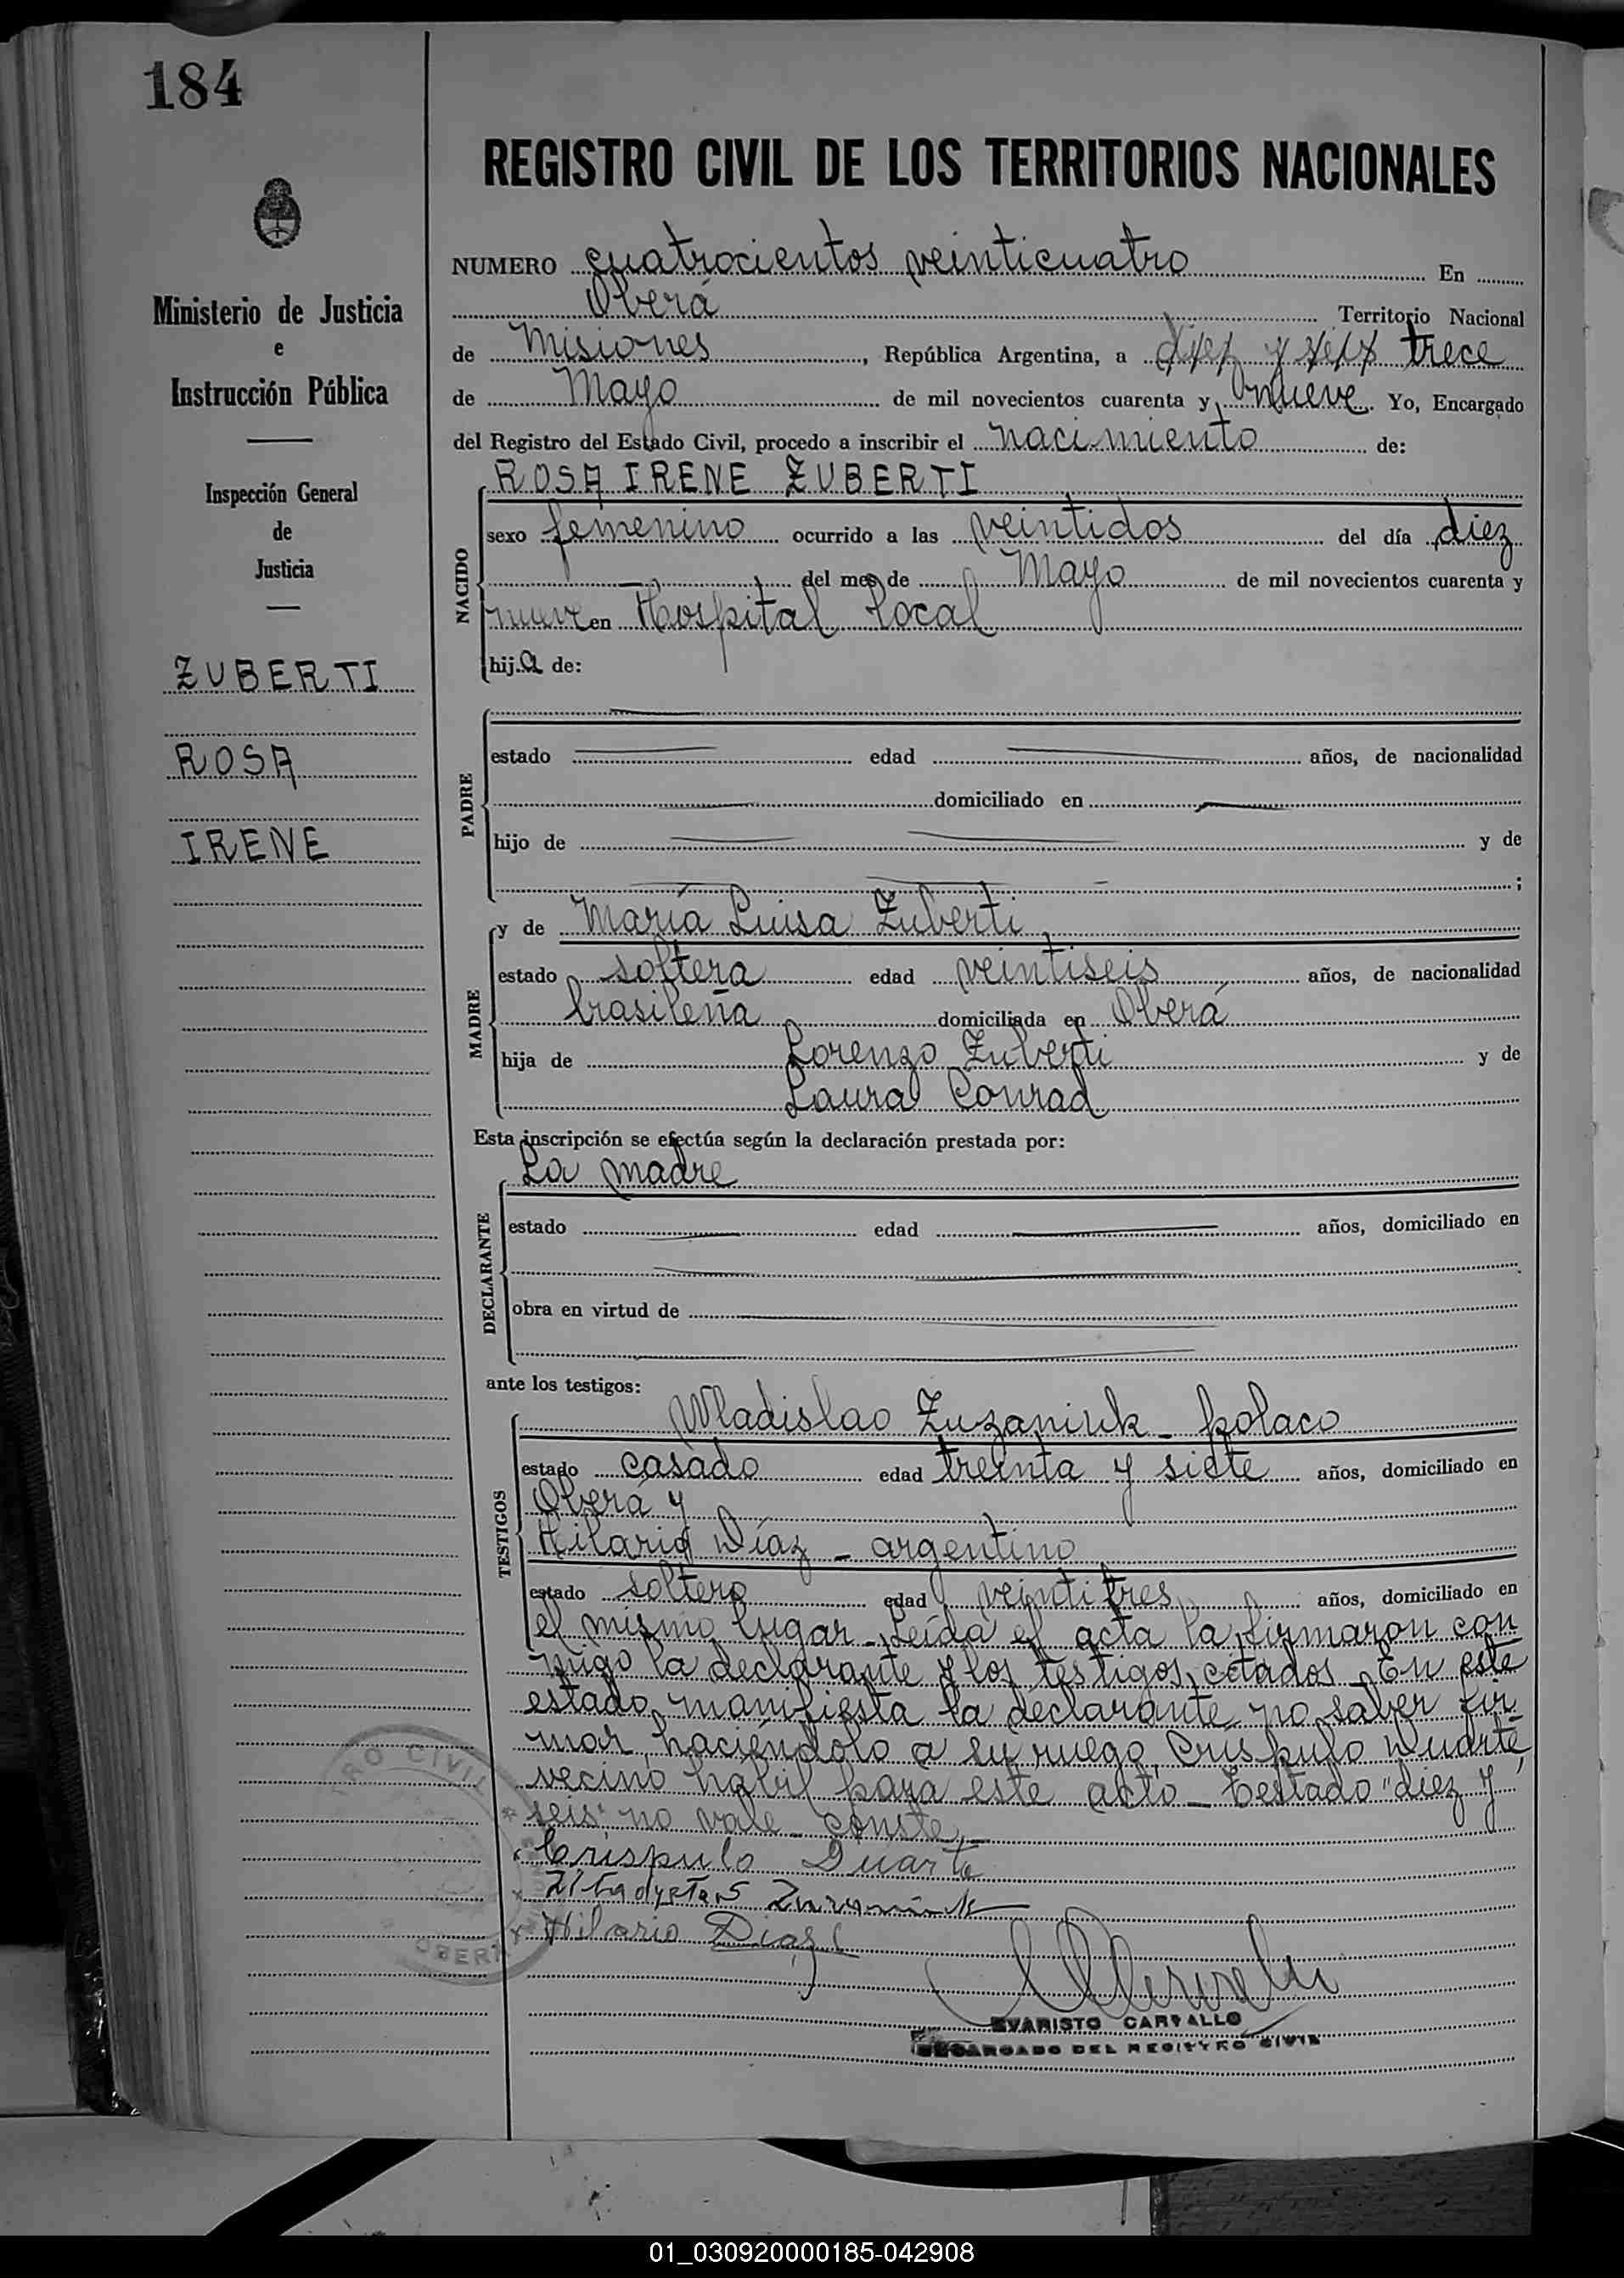 184
REGISTRO CIVIL DE LOS TERRITORIOS NACIONALES
Ministerio de Justicia
e
Instrucción Pública
Inspección General
de
Justicia
ZUBERTI
ROSA
IRENE
NUMERO cuatrocientos veinticuatro En
Oberá Territorio Nacional
de Misiones, República Argentina, a diez y seis trece
de Mayo de mil novecientos cuarenta y nueve. Yo, Encargado
del Registro del Estado Civil, procedo a inscribir el nacimiento de:
NACIDO
ROSA IRENE ZUBERTI
sexo femenino ocurrido a las veintidos del día diez
del mes de Mayo de mil novecientos cuarenta y
nueve en Hospital Local
hija de:
PADRE
estado edad años, de nacionalidad
domiciliado en
hijo de y de
;
MADRE
y de María Luisa Zuberti
estado soltera edad veintiseis años, de nacionalidad
brasileña domiciliada en Oberá
hija de Lorenzo Zuberti y de
Laura Conrad
Esta inscripción se efectúa según la declaración prestada por:
DECLARANTE
La madre
estado edad años, domiciliado en
obra en virtud de
ante los testigos:
TESTIGOS
Wladislao Zuzaniuk - polaco
estado casado edad treinta y siete años, domiciliado en
Oberá y
Hilario Díaz - argentino
estado soltero edad veintitres años, domiciliado en
el mismo lugar - Leída el acta la firmaron con
migo la declarante y los testigos citados. En este
estado manifiesta la declarante no saber fir
mar, haciéndolo a su ruego, Críspulo Duarte,
vecino habil para este acto - Testado "diez y
seis" no vale - conste, -
Críspulo Duarte
Hilario Diaz
EVARISTO CARVALLO
ENCARGADO DEL REGISTRO CIVIL
CIVIL
OBERA
01_030920000185-042908